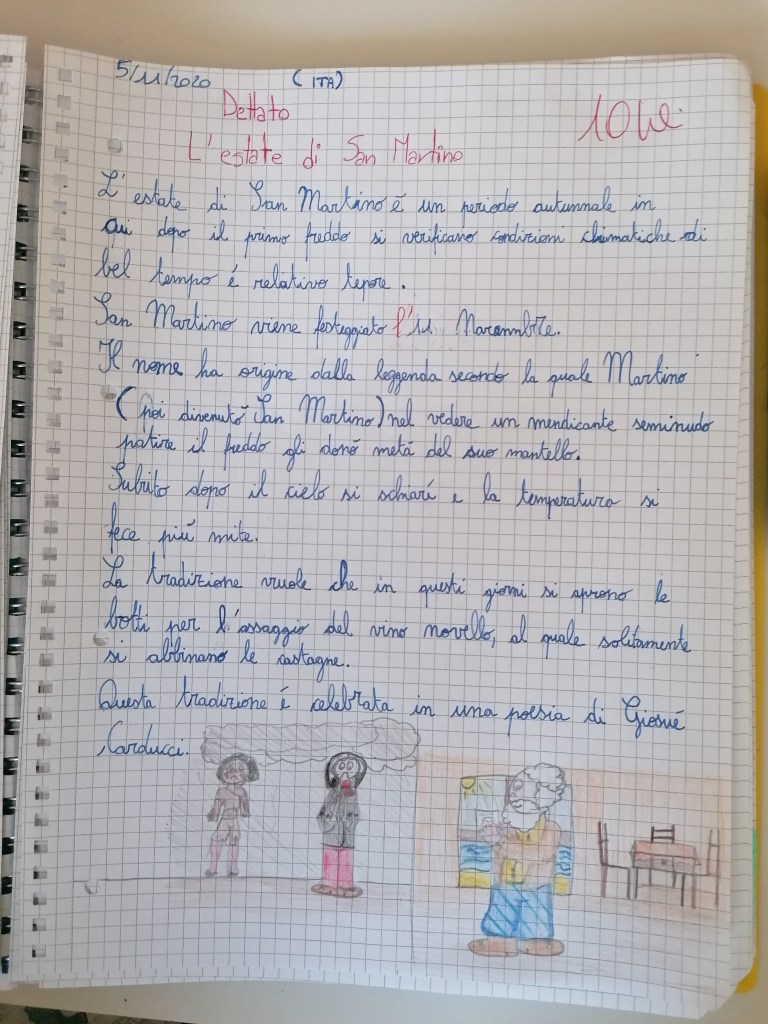 5/11/2020 (ITA)
Dettato 10 e lode
L'estate di San Martino
L'estate di San Martino é un periodo autunnale in
cui dopo il primo freddo si verificano condizioni climatiche di
bel tempo é relativo tepore.
San Martino viene festeggiato l'11
Il nome ha origine dalla leggenda secondo la quale Martino
(poi divenutó San Martino) nel vedere un mendicante seminudo
patire il freddo gli donó metá del suo mantello.
Subito dopo il cielo si schiarí e la temperatura si
fece piú mite.
La tradizione vuole che in questi giorni si aprono le
botti per l'assaggio del vino novello, al quale solitamente
si abbinano le castagne.
Questa tradizione é celebrata in una poesia di Giosué
Carducci.